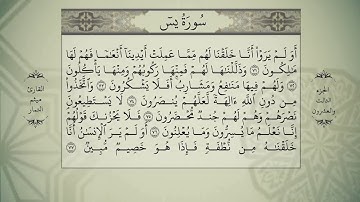 سُورَةُ يسٓ
أَوَلَمْ يَرَوْا۟ أَنَّا خَلَقْنَا لَهُم مِّمَّا عَمِلَتْ أَيْدِينَآ أَنْعَـٰمًا فَهُمْ لَهَا
مَـٰلِكُونَ ٧١ وَذَلَّلْنَـٰهَا لَهُمْ فَمِنْهَا رَكُوبُهُمْ وَمِنْهَا يَأْكُلُونَ
٧٢ وَلَهُمْ فِيهَا مَنَـٰفِعُ وَمَشَارِبُ أَفَلَا يَشْكُرُونَ ٧٣ وَٱتَّخَذُوا۟
مِن دُونِ ٱللَّهِ ءَالِهَةً لَّعَلَّهُمْ يُنصَرُونَ ٧٤ لَا يَسْتَطِيعُونَ
نَصْرَهُمْ وَهُمْ لَهُمْ جُندٌ مُّحْضَرُونَ ٧٥ فَلَا يَحْزُنكَ قَوْلُهُمْ
إِنَّا نَعْلَمُ مَا يُسِرُّونَ وَمَا يُعْلِنُونَ ٧٦ أَوَلَمْ يَرَ ٱلْإِنسَـٰنُ أَنَّا
خَلَقْنَـٰهُ مِن نُّطْفَةٍ فَإِذَا هُوَ خَصِيمٌ مُّبِينٌ ٧٧
الجزء
الثالث
والعشرون
القارئ
ميثم
التمار